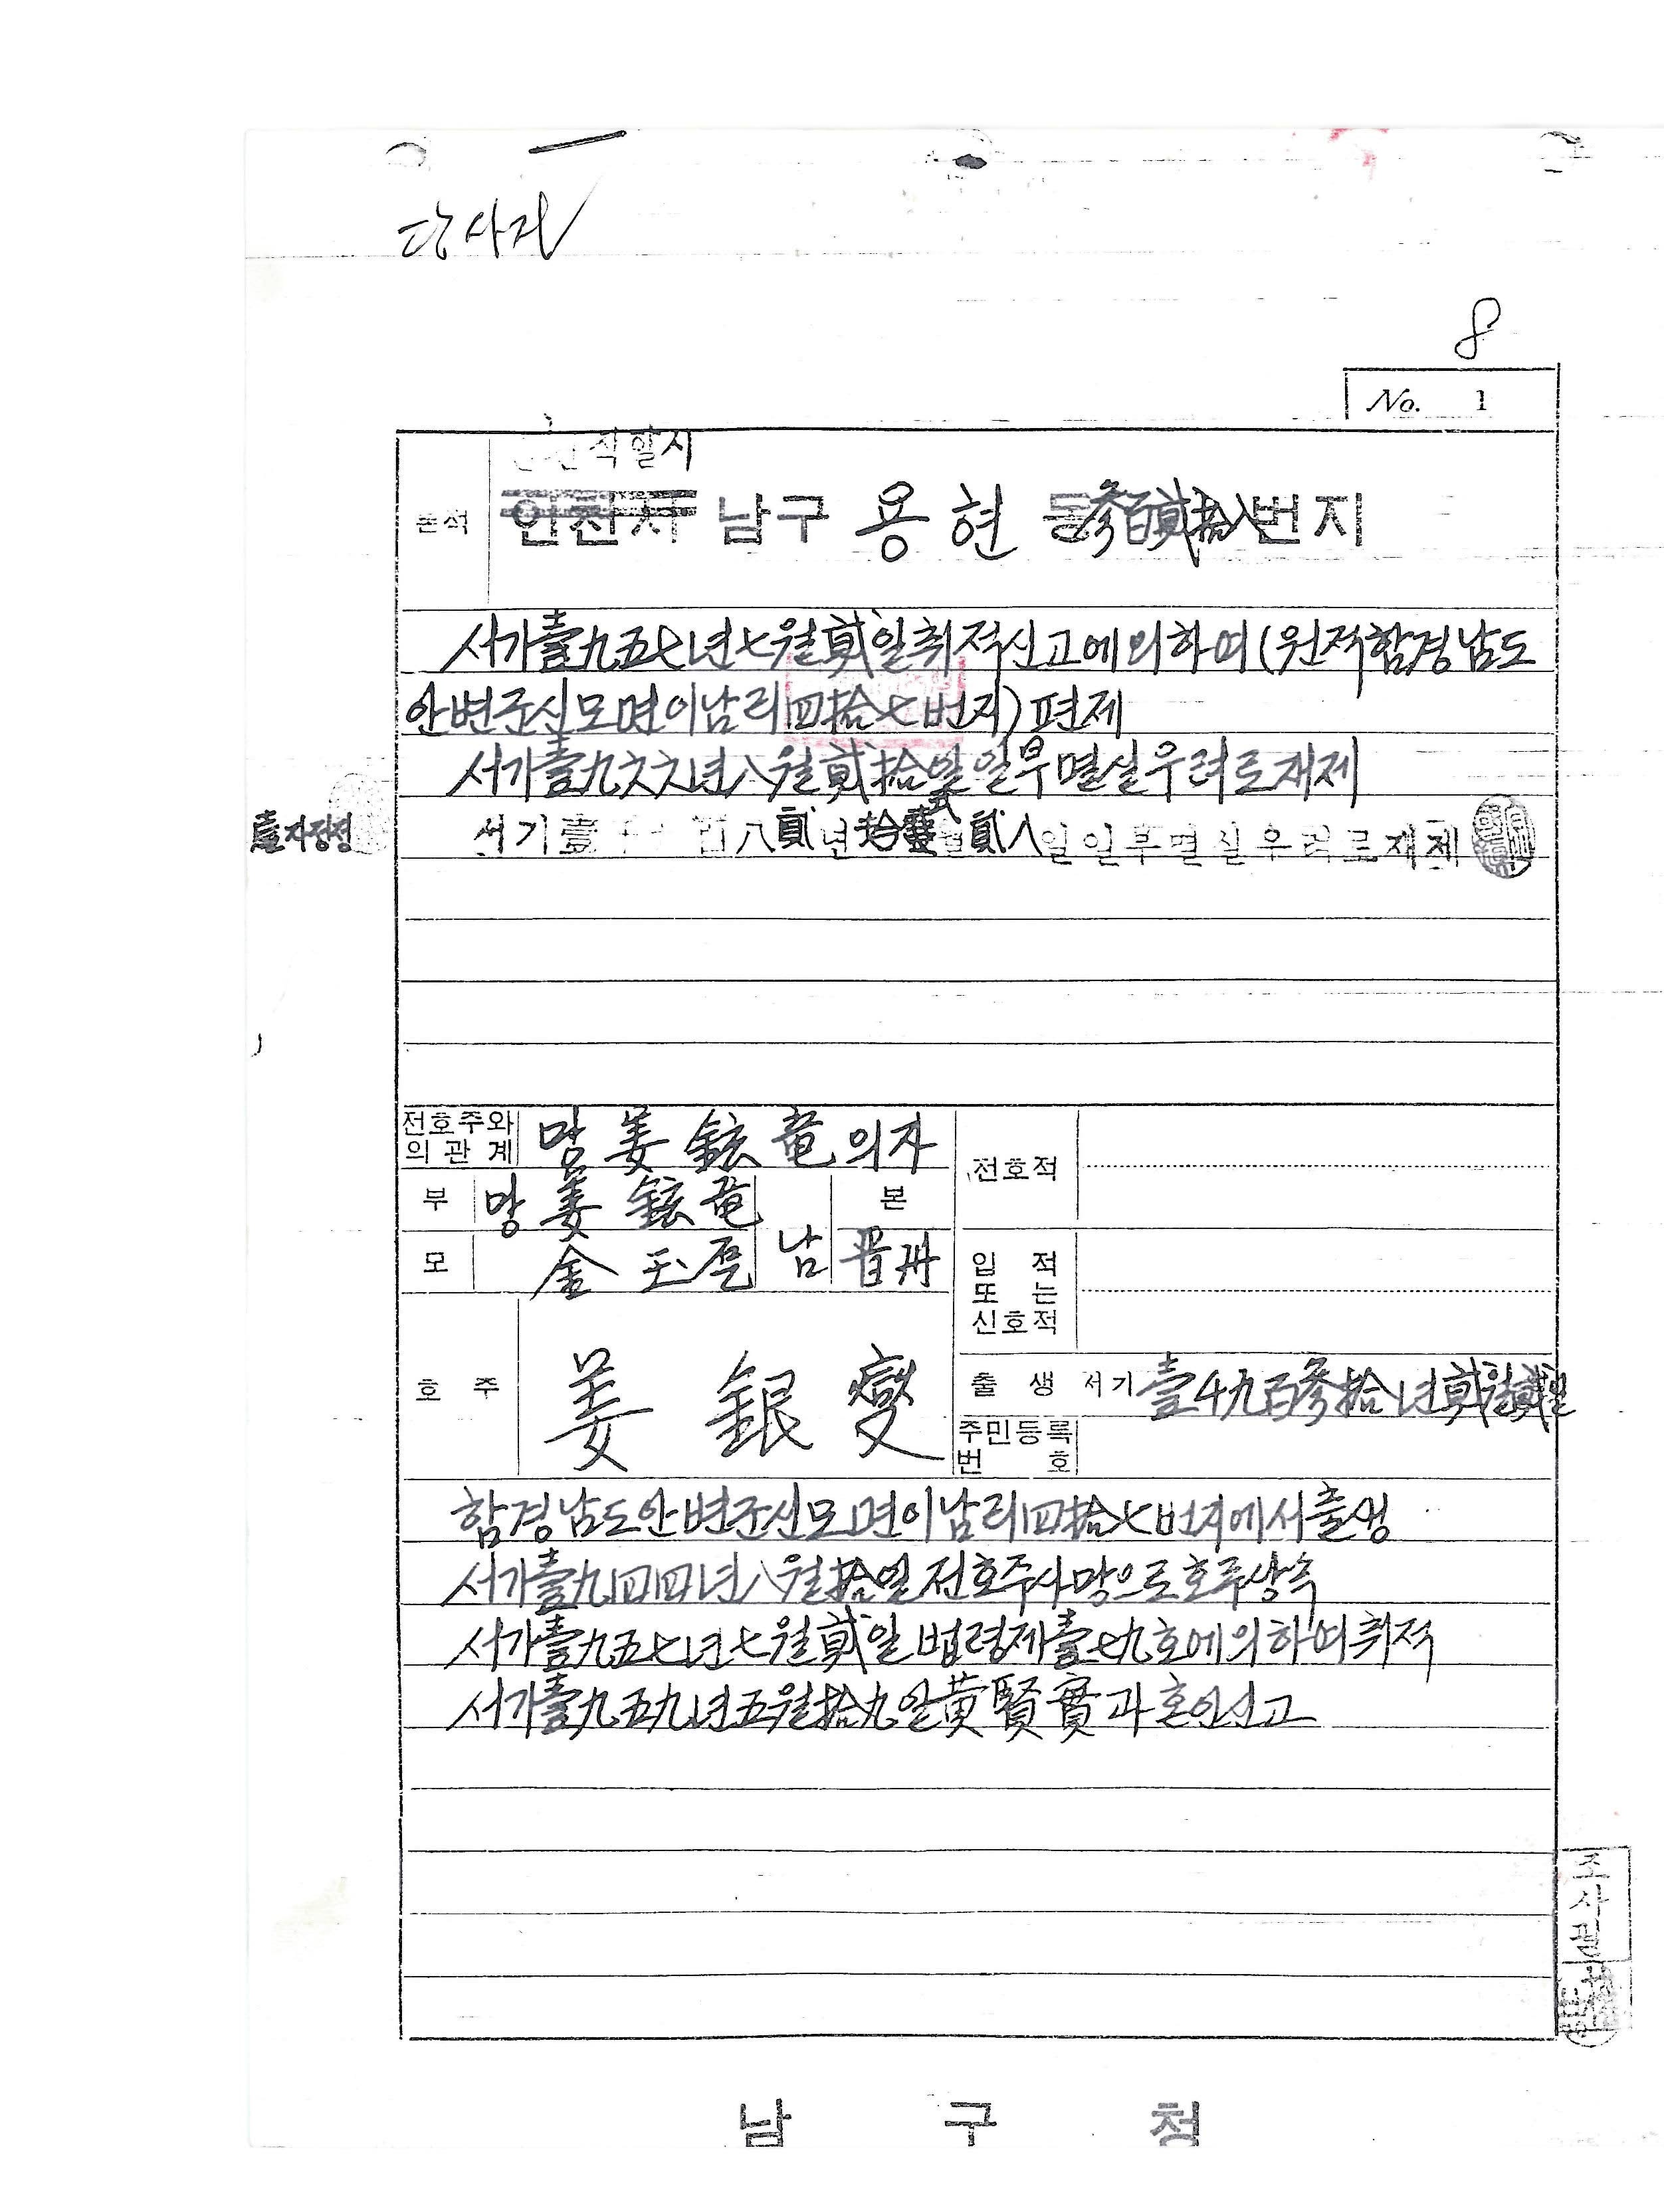 8
No. 1
직할시
본적 인천시 남구 용현 동 參百貳拾八 번지
서기壹九五七년七월貳일취적신고에의하여(원적함경남도
안변군신모면이남리四拾七번지)편제
서기壹九六六년八월貳拾일일부멸실우려로재제
壹자정정
서기壹 百八貳년拾 월貳八일일부멸실우려로재제
전호주와의 관계 망姜鉉竜의자
전호적
부 망姜鉉竜
본
모 金玉 남 晋州
입적 또는 신호적
호주 姜銀燮
출생 서기壹千九百參拾년貳월貳일
주민등록번호
함경남도안변군신모면이남리四拾七번지에서출생
서기壹九四四년八월拾일전호주사망으로호주상속
서기壹九五七년七월貳일법령제壹七九호에의하여취적
서기壹九五九년五월拾九일黄賢寶과혼인신고
조사필
남구청